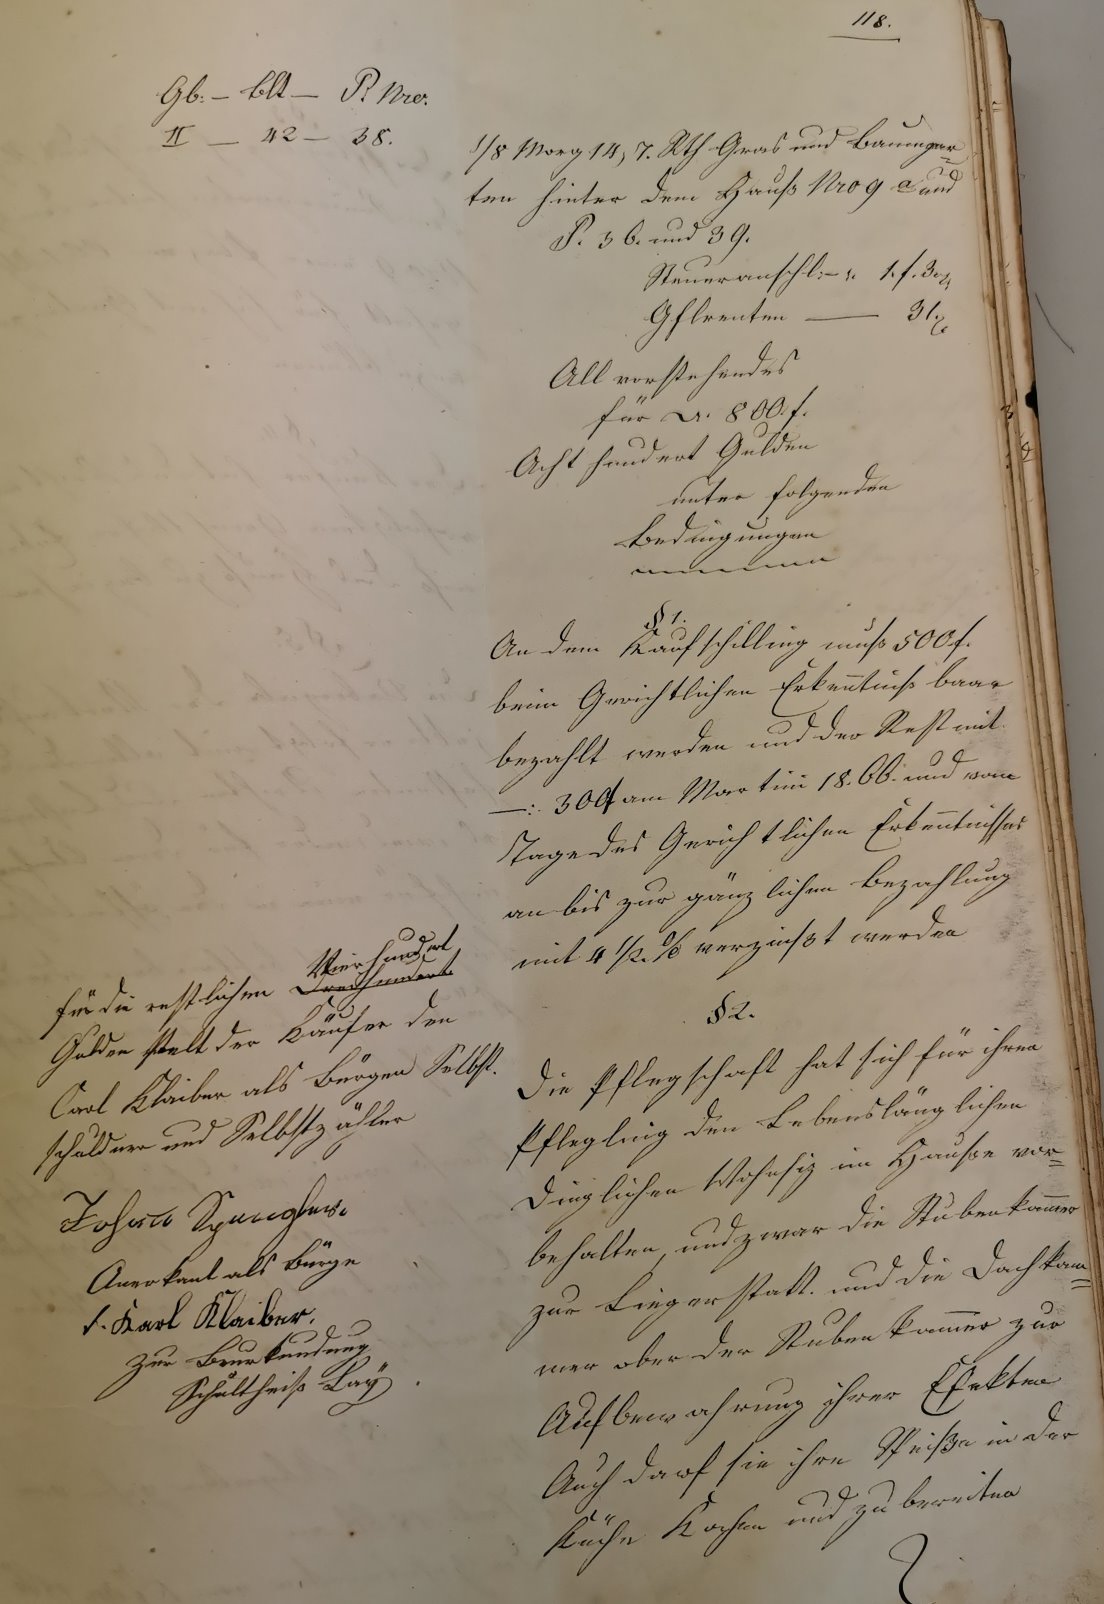 118.
Gb. – Blt – P. Nro.
II – 42 – 38.
1/8 Morg 14,7. Rth Gras und Baumgar=
ten hinter dem Hauß Nro 9 a und
P. 36. und 39.
Steueranschl. – 1. f. 3
Gflrenten — 31
All vorstehendes
für 800. f.
Acht hundert Gulden
unter folgenden
Bedingungen
§ 1.
An dem Kaufschilling muß 500 f.
beim Gerichtlichen Erkenntniß baar
bezahlt werden und der Rest mit
—: 300 f am Martini 18.66. und vom
Tage des Gerichtlichen Erkenntnisses
an bis zur gänzlichen Bezahlung
mit 4 1/2. % verzinßt werden
§ 2.
Die Pflegschaft hat sich für ihren
Pflegling den Lebenslänglichen
Dinglichen Wohnsiz im Hauße vor=
behalten, und zwar die Stubenkammer
zur Liegerstatt. und die Dachkam=
mer ober der Stubenkammer zur
Aufbewahrung ihrer Efekten
Auch darf sie ihre Speiße in der
Küche Kochen und zu bereiten
Vierhundert
für die restlichen Dreihundert
Gulden stelt der Käufer den
Carl Klaiber als Bürgen Selbst=
schuldner und Selbstzahler
Johann Spengler.
Anerkant als Bürge
t. Karl Klaiber.
Zur Beurkundung
Schultheiß Lay